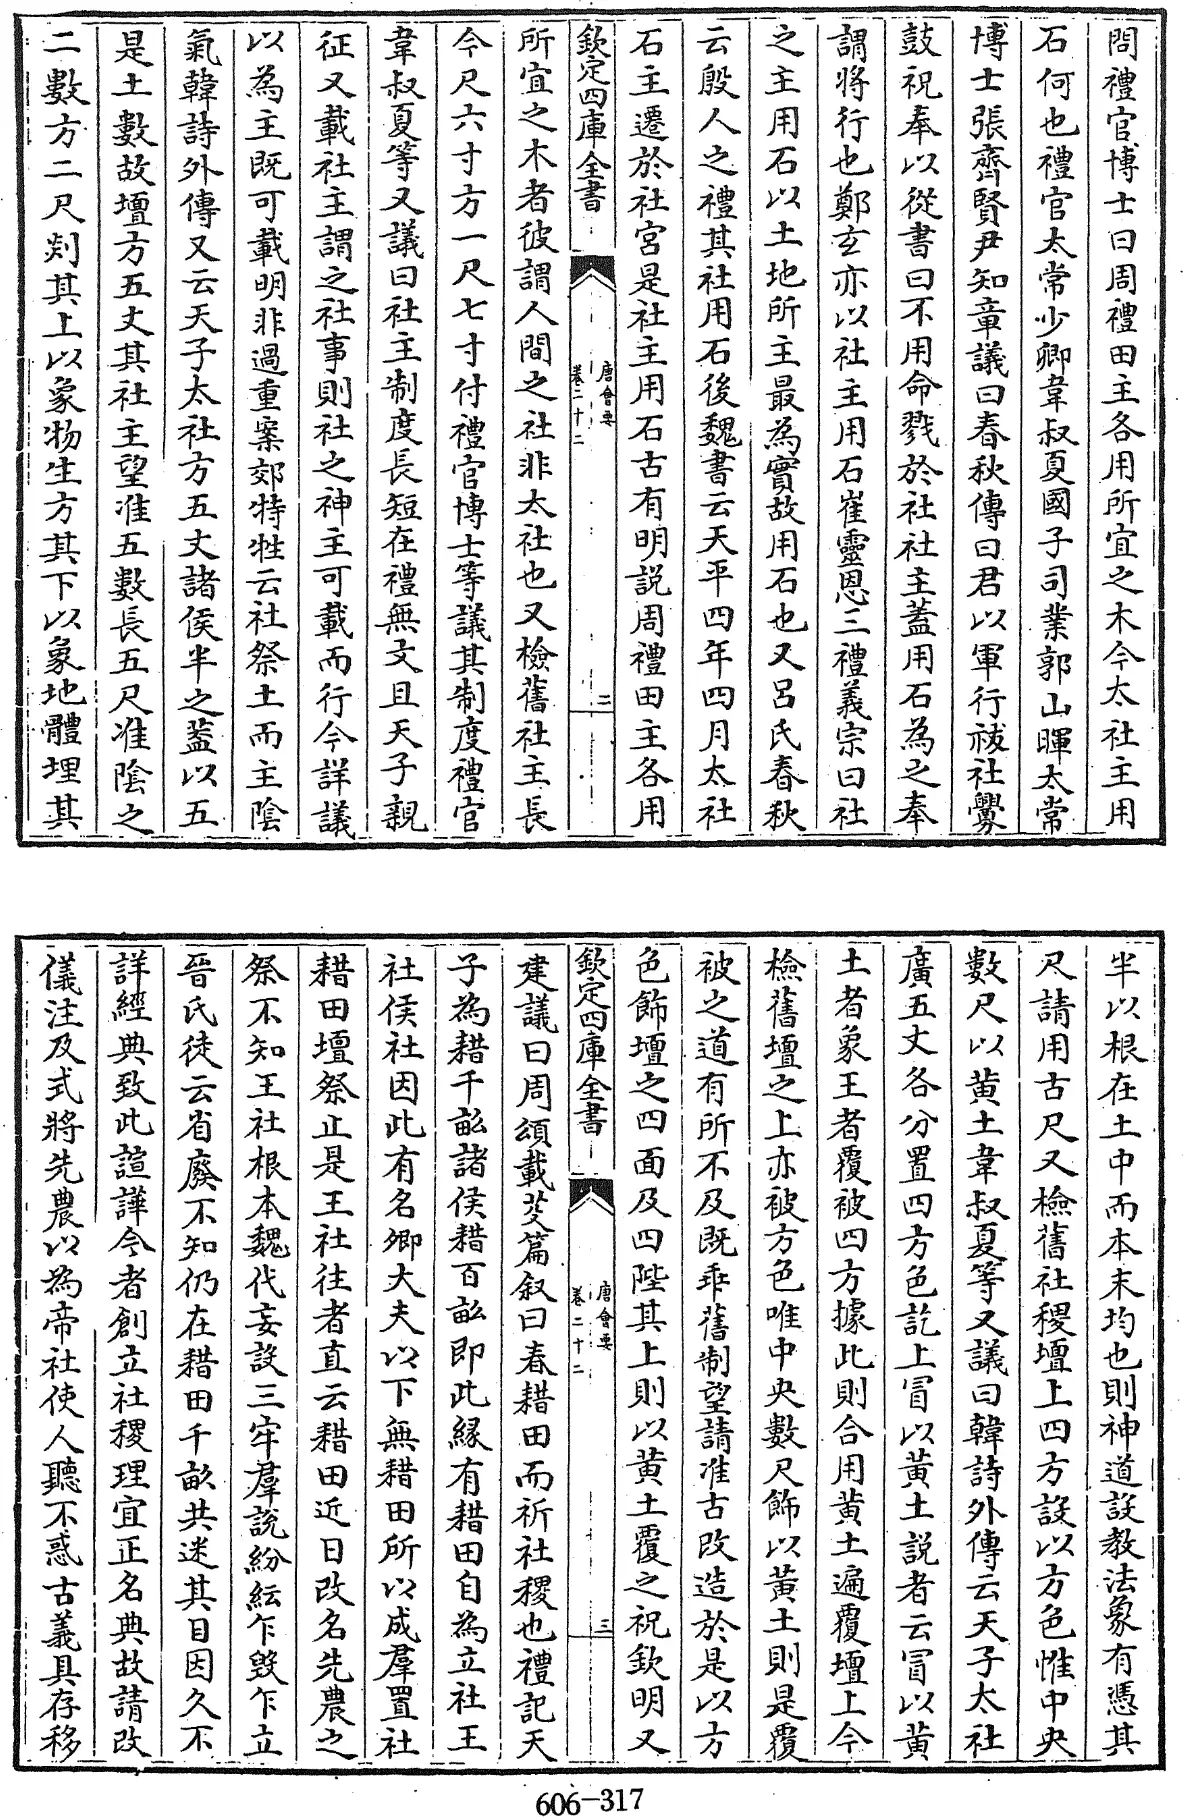 問禮官博士曰周禮田主各用所宜之木今太社主用
石何也禮官太常少卿韋叔夏國子司業郭山暉太常
博士張齊賢尹知章議曰春秋傳曰君以軍行祓社釁
鼓祝奉以從書曰不用命戮於社社主蓋用石為之奉
謂將行也鄭玄亦以社主用石崔靈恩三禮義宗曰社
之主用石以土地所主最為實故用石也又呂氏春秋
云殷人之禮其社用石後魏書云天平四年四月太社
石主遷於社宮是社主用石古有明說周禮田主各用
欽定四庫全書
唐會要
卷二十二
二
所宜之木者彼謂人間之社非太社也又檢舊社主長
今尺六寸方一尺七寸付禮官博士等議其制度禮官
韋叔夏等又議曰社主制度長短在禮無文且天子親
征又載社主謂之社事則社之神主可載而行今詳議
以為主既可載明非過重案郊特牲云社祭土而主陰
氣韓詩外傳又云天子太社方五丈諸侯半之蓋以五
是土數故壇方五丈其社主望准五數長五尺准陰之
二數方二尺剡其上以象物生方其下以象地體埋其
半以根在土中而本末均也則神道設教法象有憑其
尺請用古尺又檢舊社稷壇上四方設以方色惟中央
數尺以黃土韋叔夏等又議曰韓詩外傳云天子太社
廣五丈各分置四方色訖上冒以黃土說者云冒以黃
土者象王者覆被四方據此則合用黃土遍覆壇上今
檢舊壇之上亦被方色唯中央數尺飾以黃土則是覆
被之道有所不及既乖舊制望請准古改造於是以方
色飾壇之四面及四陛其上則以黃土覆之祝欽明又
欽定四庫全書
唐會要
卷二十二
三
建議曰周頌載芟篇叙曰春耤田而祈社稷也禮記天
子為耤千畝諸侯耤百畝即此緣有耤田自為立社王
社侯社因此有名卿大夫以下無耤田所以成羣置社
耤田壇祭止是王社往者直云耤田近日改名先農之
祭不知王社根本魏代妄設三牢羣說紛紜乍毀乍立
晉氏徒云省廢不知仍在耤田千畝共迷其目因久不
詳經典致此諠譁今者創立社稷理宜正名典故請改
儀注及式將先農以為帝社使人聽不惑古義具存移
606-317